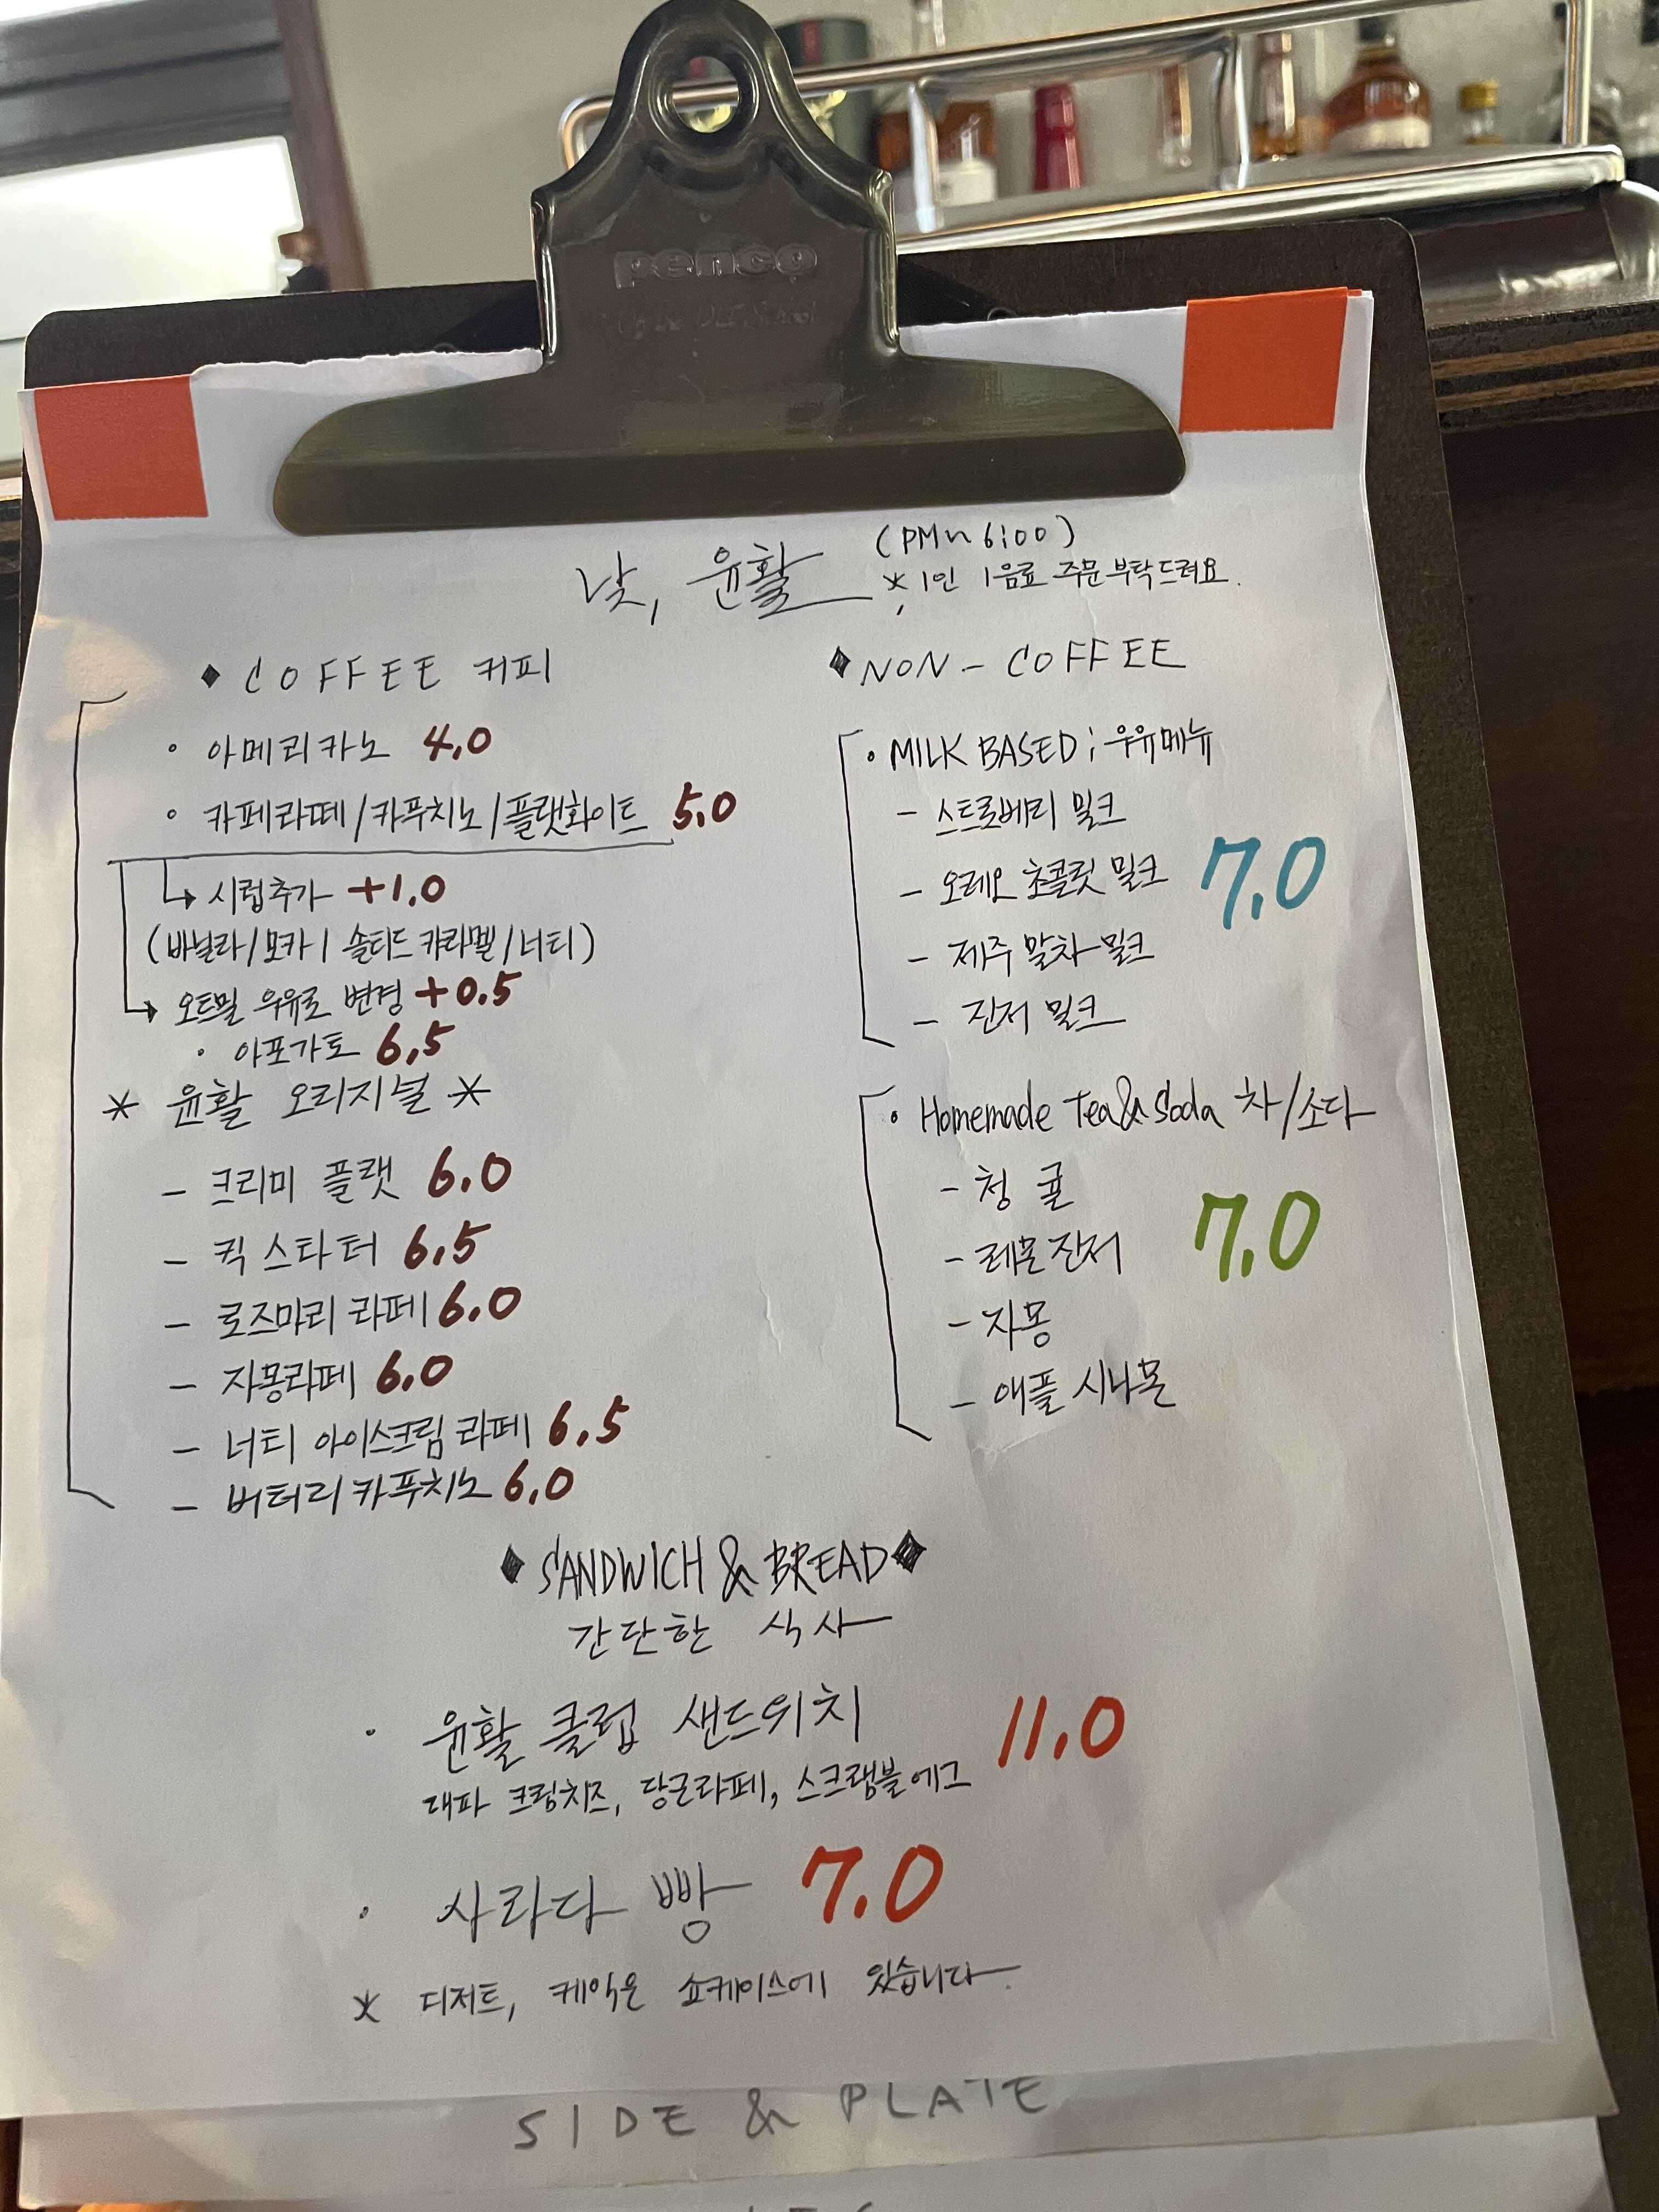 penco
낮, 윤활 (PM~6:00)
※ 1인 1음료 주문 부탁드려요.
◆ COFFEE 커피
• 아메리카노 4.0
• 카페라떼/카푸치노/플랫화이트 5.0
↳ 시럽추가 +1.0
(바닐라/모카/솔티드 카라멜/너티)
↳ 오트밀 우유로 변경 +0.5
• 아포가토 6.5
* 윤활 오리지널 *
- 크리미 플랫 6.0
- 킥 스타터 6.5
- 로즈마리 라떼 6.0
- 자몽라떼 6.0
- 너티 아이스크림 라떼 6.5
- 버터리 카푸치노 6.0
◆ NON-COFFEE
• MILK BASED; 우유메뉴
- 스트로베리 밀크
- 오레오 초콜릿 밀크 7.0
- 제주 말차 밀크
- 진저 밀크
• Homemade Tea & Soda 차/소다
- 청귤
- 레몬진저 7.0
- 자몽
- 애플 시나몬
◆ SANDWICH & BREAD ◆
간단한 식사
• 윤활 클럽 샌드위치 11.0
대파 크림치즈, 당근라페, 스크램블에그
• 사라다 빵 7.0
* 디저트, 케익은 쇼케이스에 있습니다.
SIDE & PLATE